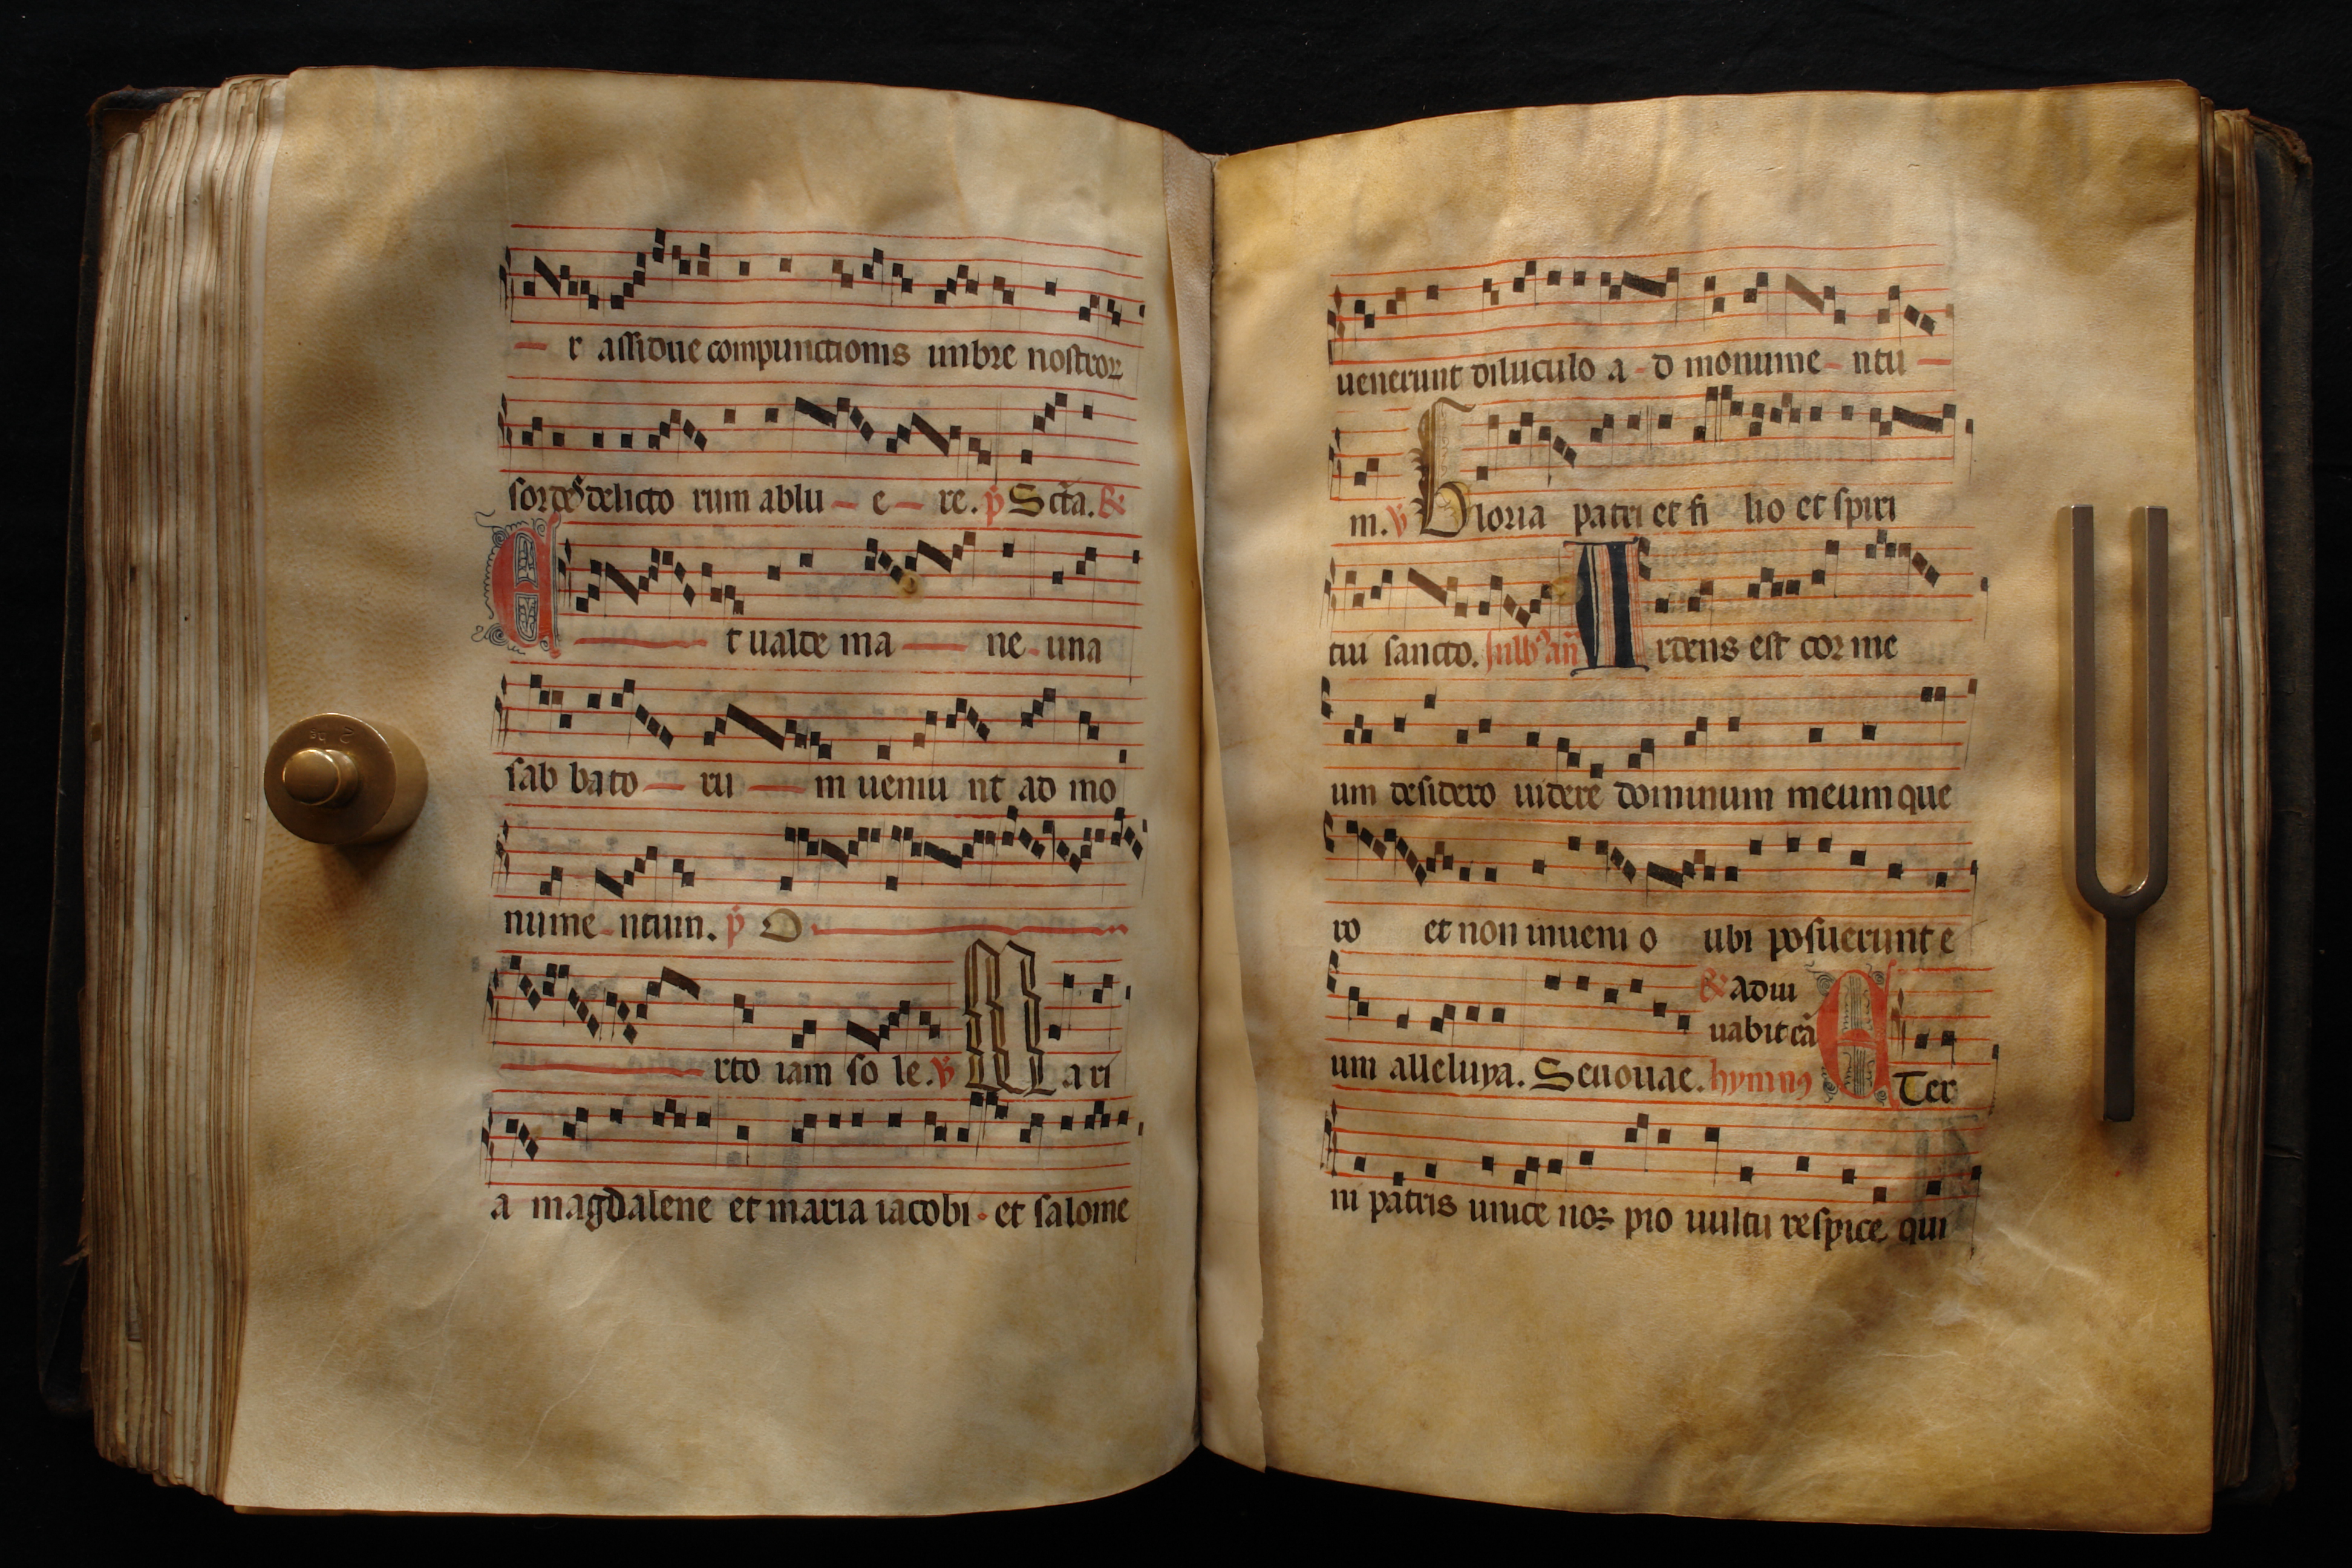 r assidue compunctionis imbre nostror
sordes delicto rum ablu e re. p Scta. &
Et ualde ma ne una
sab bato ru m ueniu nt ad mo
nume ntum. p O
rto iam so le. v Mari
a magdalene et maria iacobi et salome
uenerunt diluculo a d monume ntu
m. v Gloria patri et fi lio et spiri
tui sancto. Ardens est cor me
um desidero uidere dominum meum que
ro et non inuenio ubi posuerunt e
& adiu
uabit ea
um alleluya. Seuouae. hymnus Eter
ni patris unice nos pio uultu respice qui
2